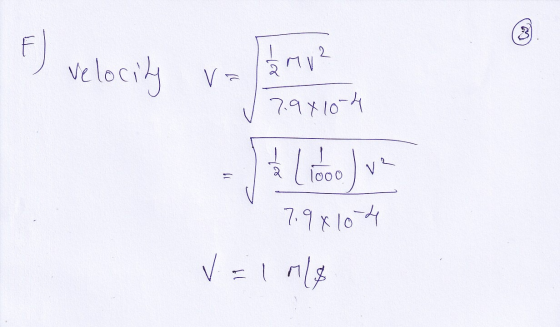 F) velocity V = √(½ MV² / 7.9×10⁻⁴) ③
= √(½ (1/1000) V² / 7.9×10⁻⁴)
V = 1 M/s